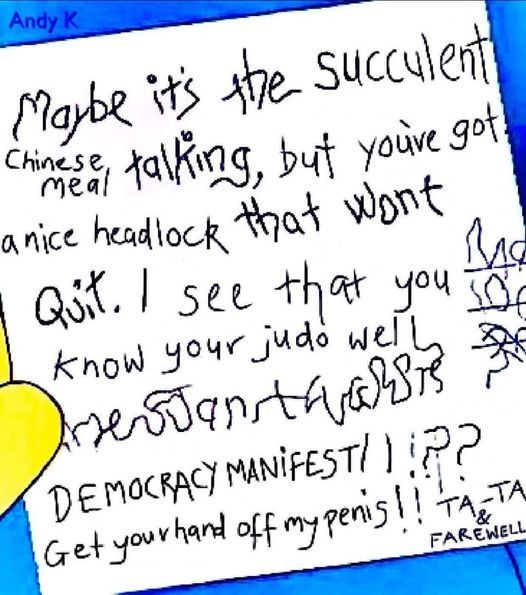 Andy K
Maybe it's the succulent
Chinese meal talking, but you've got
a nice headlock that wont
Quit. I see that you
know your judo well
DEMOCRACY MANIFEST!!!??
Get your hand off my penis!! TA-TA
&
FAREWELL